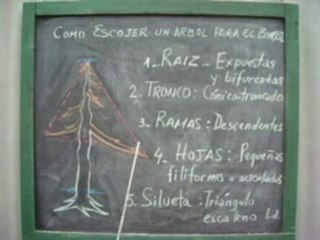 COMO ESCOJER UN ARBOL PARA EL
1- RAIZ - Expuestas
y bifurcadas
2. TRONCO: Cónico-troncado
3. RAMAS: Descendentes
4. HOJAS: Pequeñas
filiformes o aciculadas
5. Silueta: Triángulo
escaleno